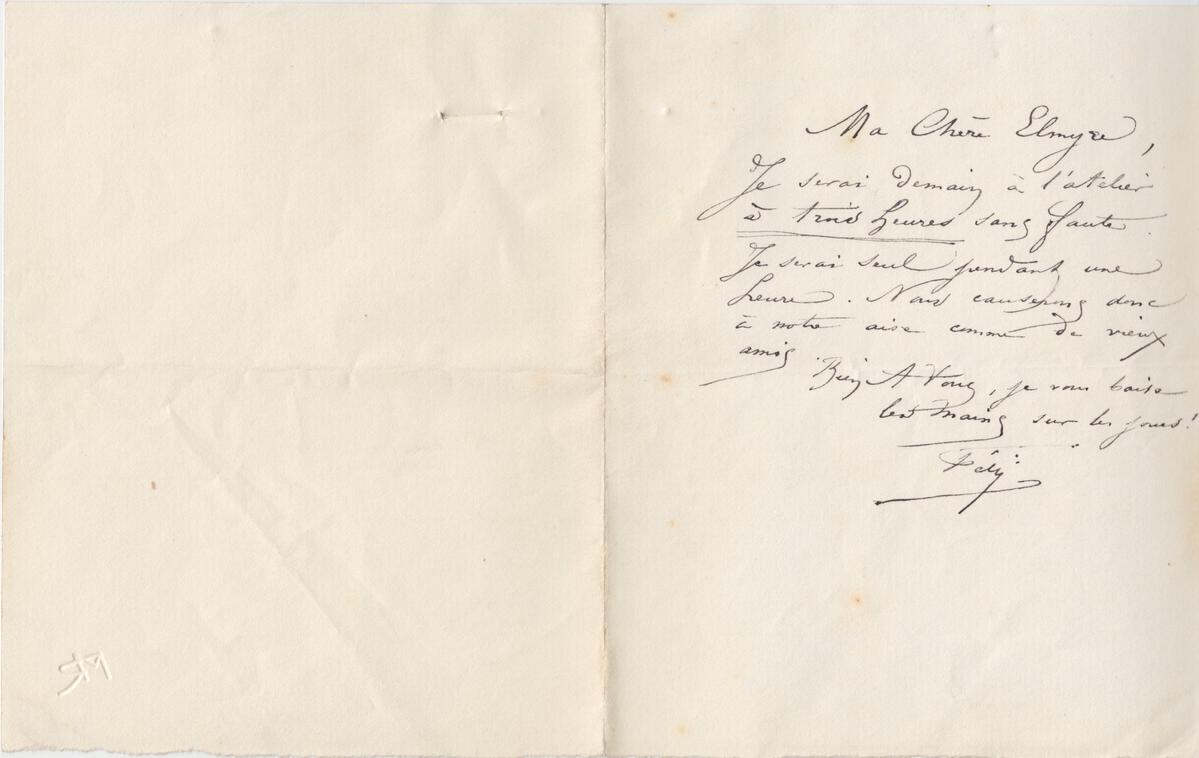 Ma Chère Elmyre,
Je serai Demain à l'atelier
à trois heures sans faute.
Je serai seul pendant une
heure. Nous causerons donc
à notre aise comme de vieux
amis
Bien A Vous, je vous baise
les mains sur les joues!
Fély